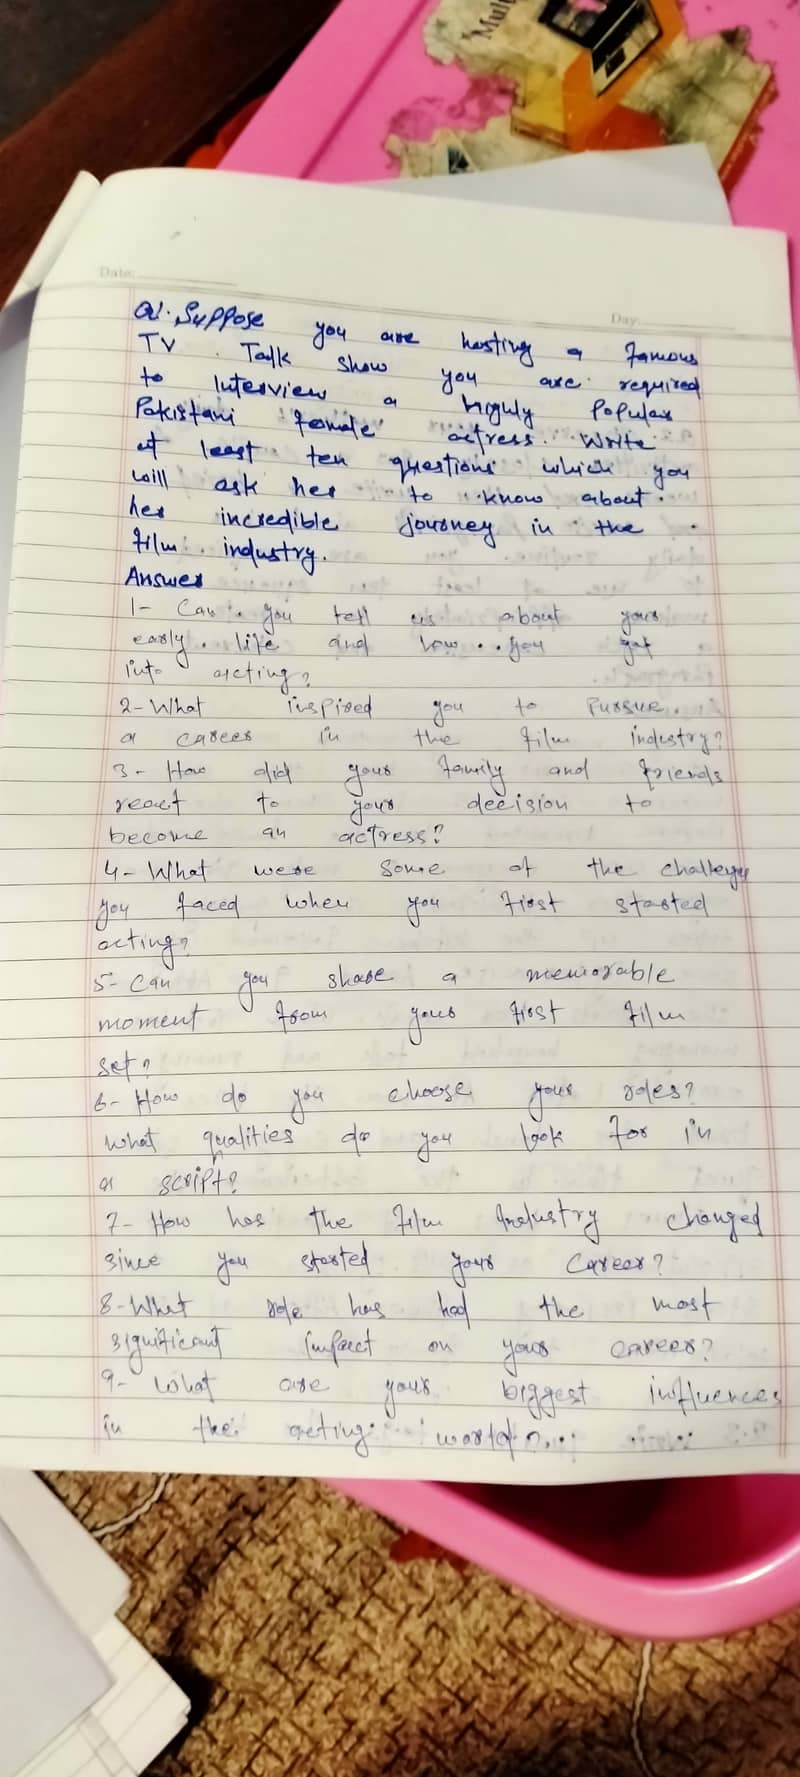 Mul
Date:
Day:
Q1. Suppose you are hosting a famous
TV Talk show you are required
to Interview a highly Popular
Pakistani female actress. Write
at least ten questions which you
will ask her to know about
her incredible journey in the
film industry.
Answer
1- Can you tell us about your
early life and how you get
into acting?
2- What inspired you to Pursue
a career in the film industry?
3- How did your family and friends
react to your decision to
become an actress?
4- What were some of the challeges
you faced when you first started
acting?
5- Can you share a memorable
moment from your first film
set?
6- How do you choose your roles?
What qualities do you look for in
a script?
7- How has the film Industry changed
since you started your career?
8- What role has had the most
significant impact on your career?
9- What are your biggest influences
in the acting world?